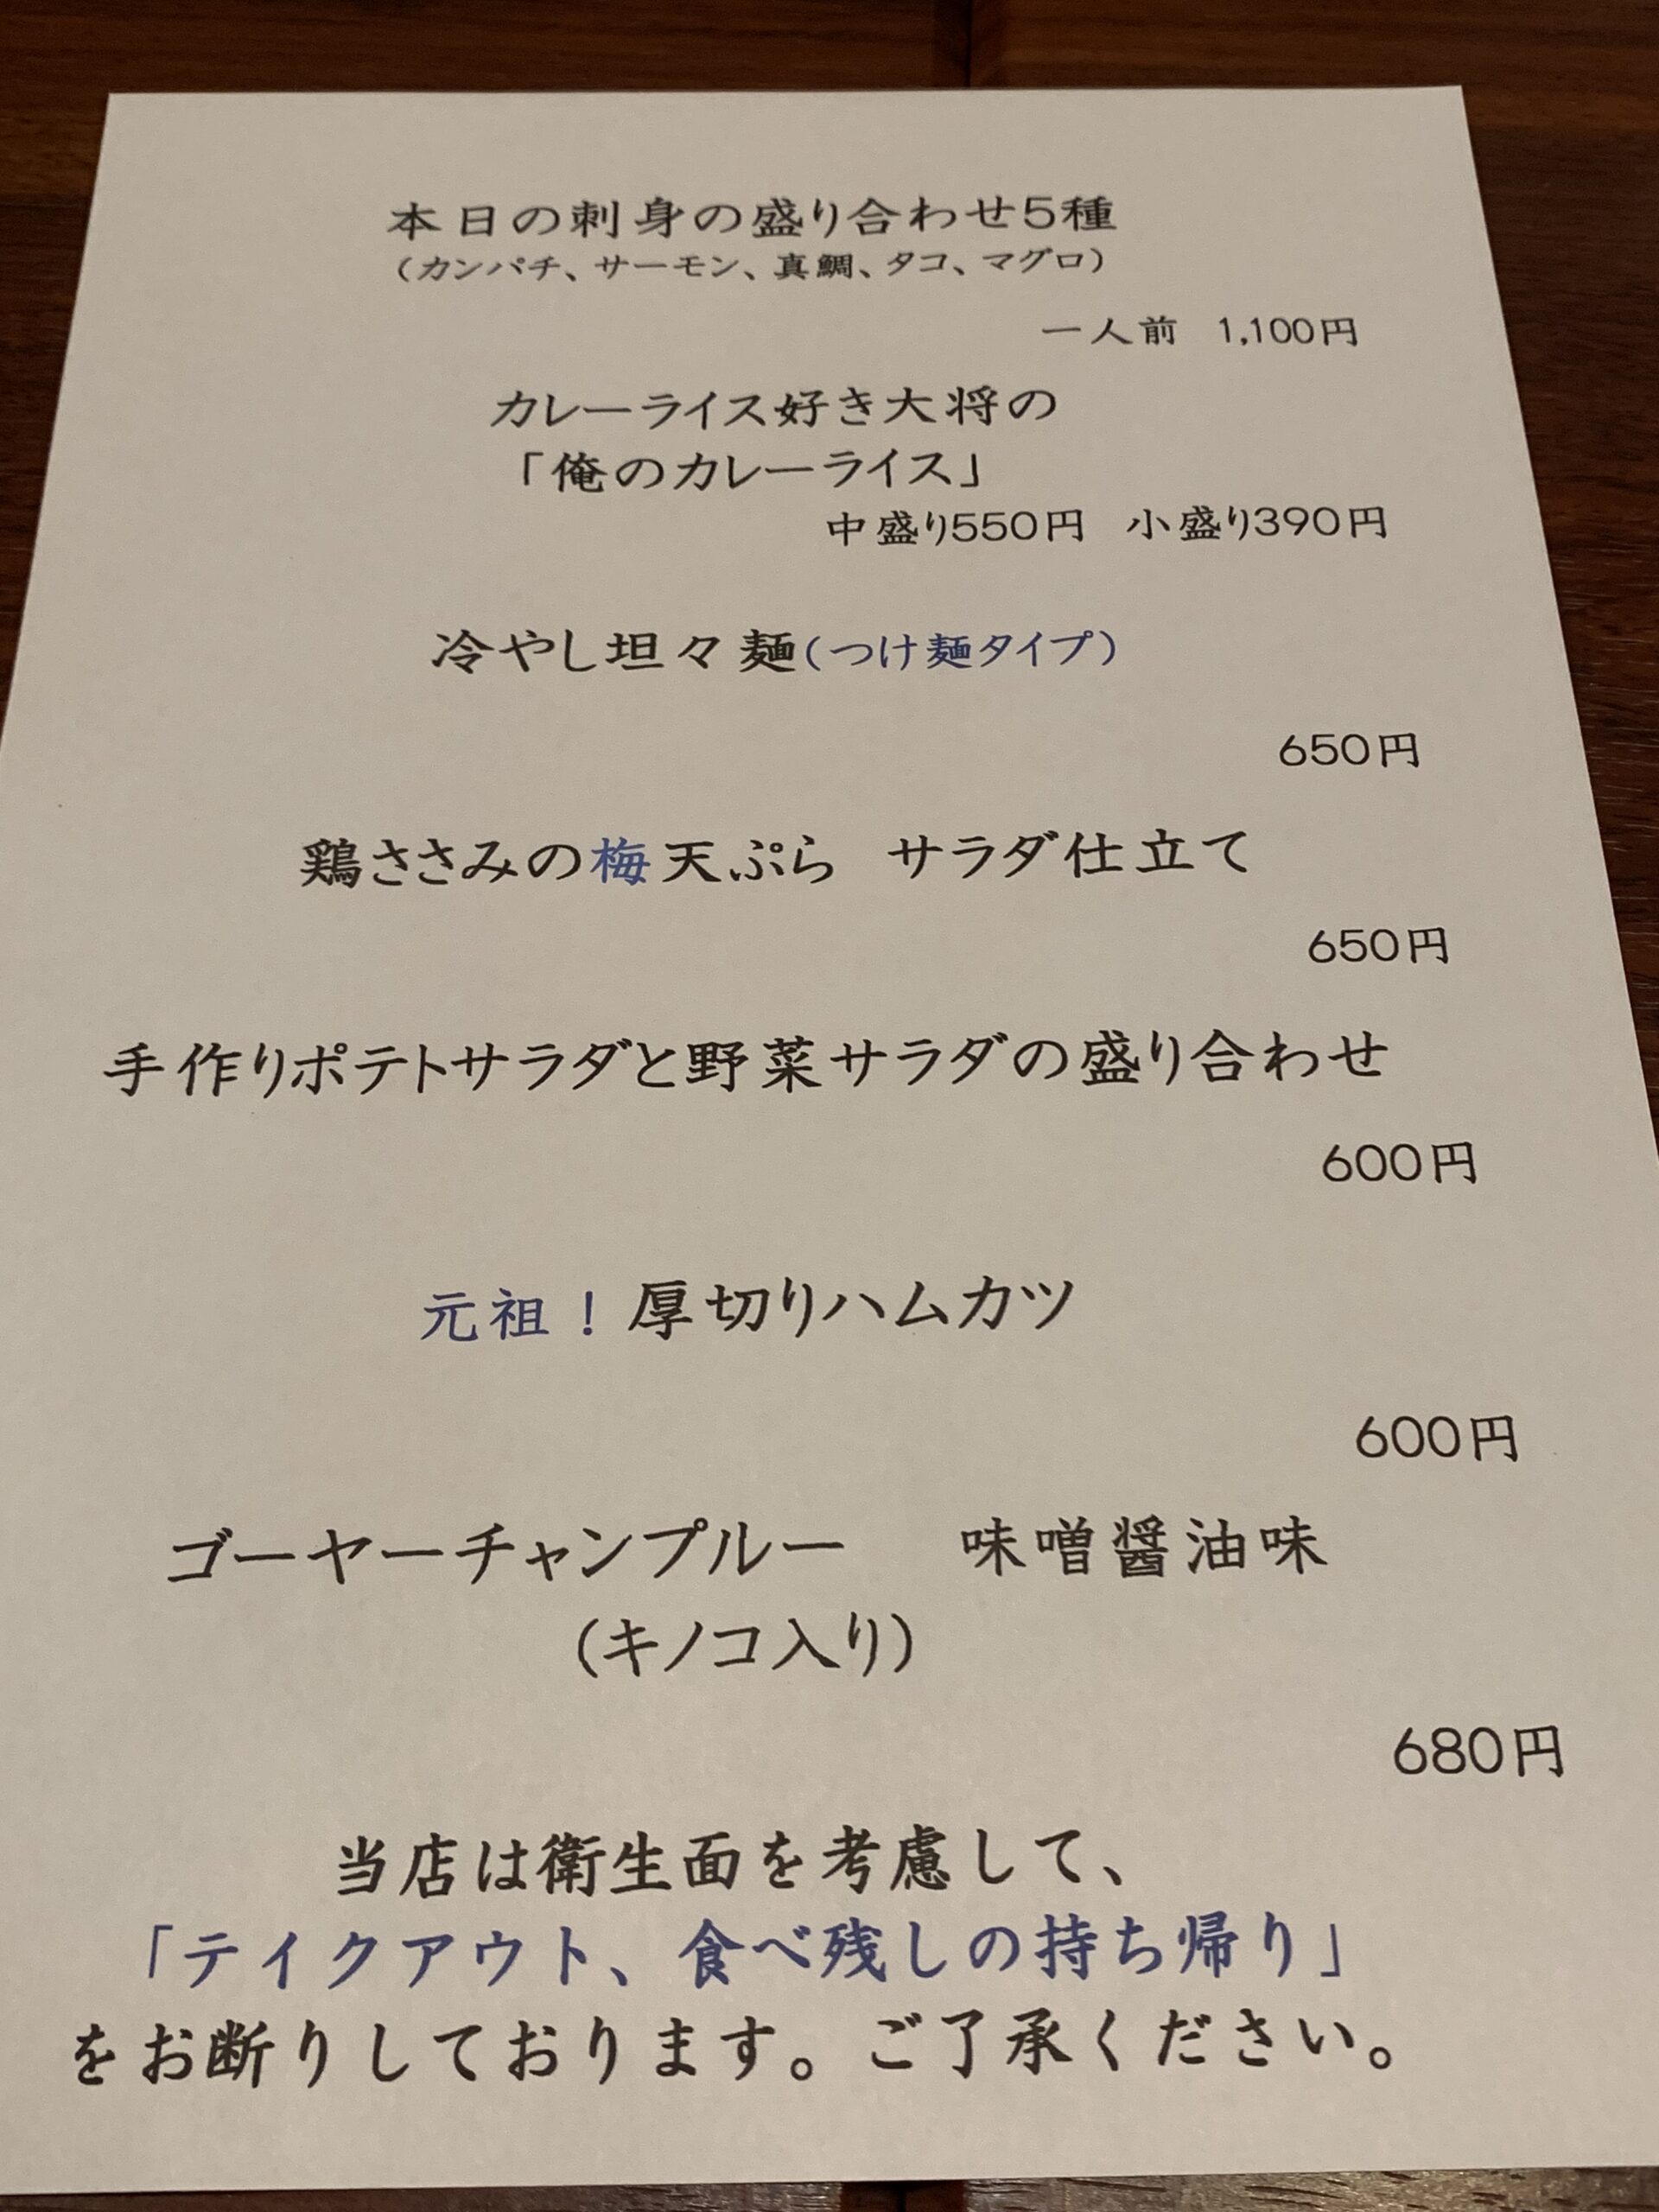 本日の刺身の盛り合わせ5種
（カンパチ、サーモン、真鯛、タコ、マグロ）
一人前　1,100円
カレーライス好き大将の
「俺のカレーライス」
中盛り550円　小盛り390円
冷やし坦々麺（つけ麺タイプ）
650円
鶏ささみの梅天ぷら　サラダ仕立て
650円
手作りポテトサラダと野菜サラダの盛り合わせ
600円
元祖！厚切りハムカツ
600円
ゴーヤーチャンプルー　味噌醤油味
（キノコ入り）
680円
当店は衛生面を考慮して、
「テイクアウト、食べ残しの持ち帰り」
をお断りしております。ご了承ください。